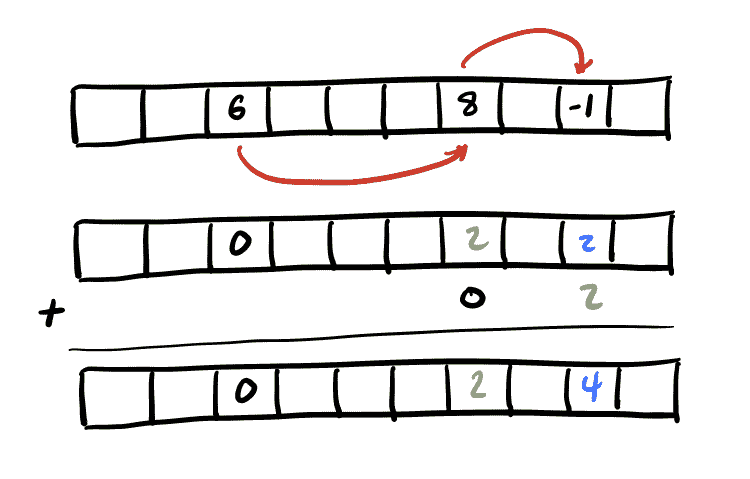 6 8 -1
0 2 2
+ 0 2
0 2 4